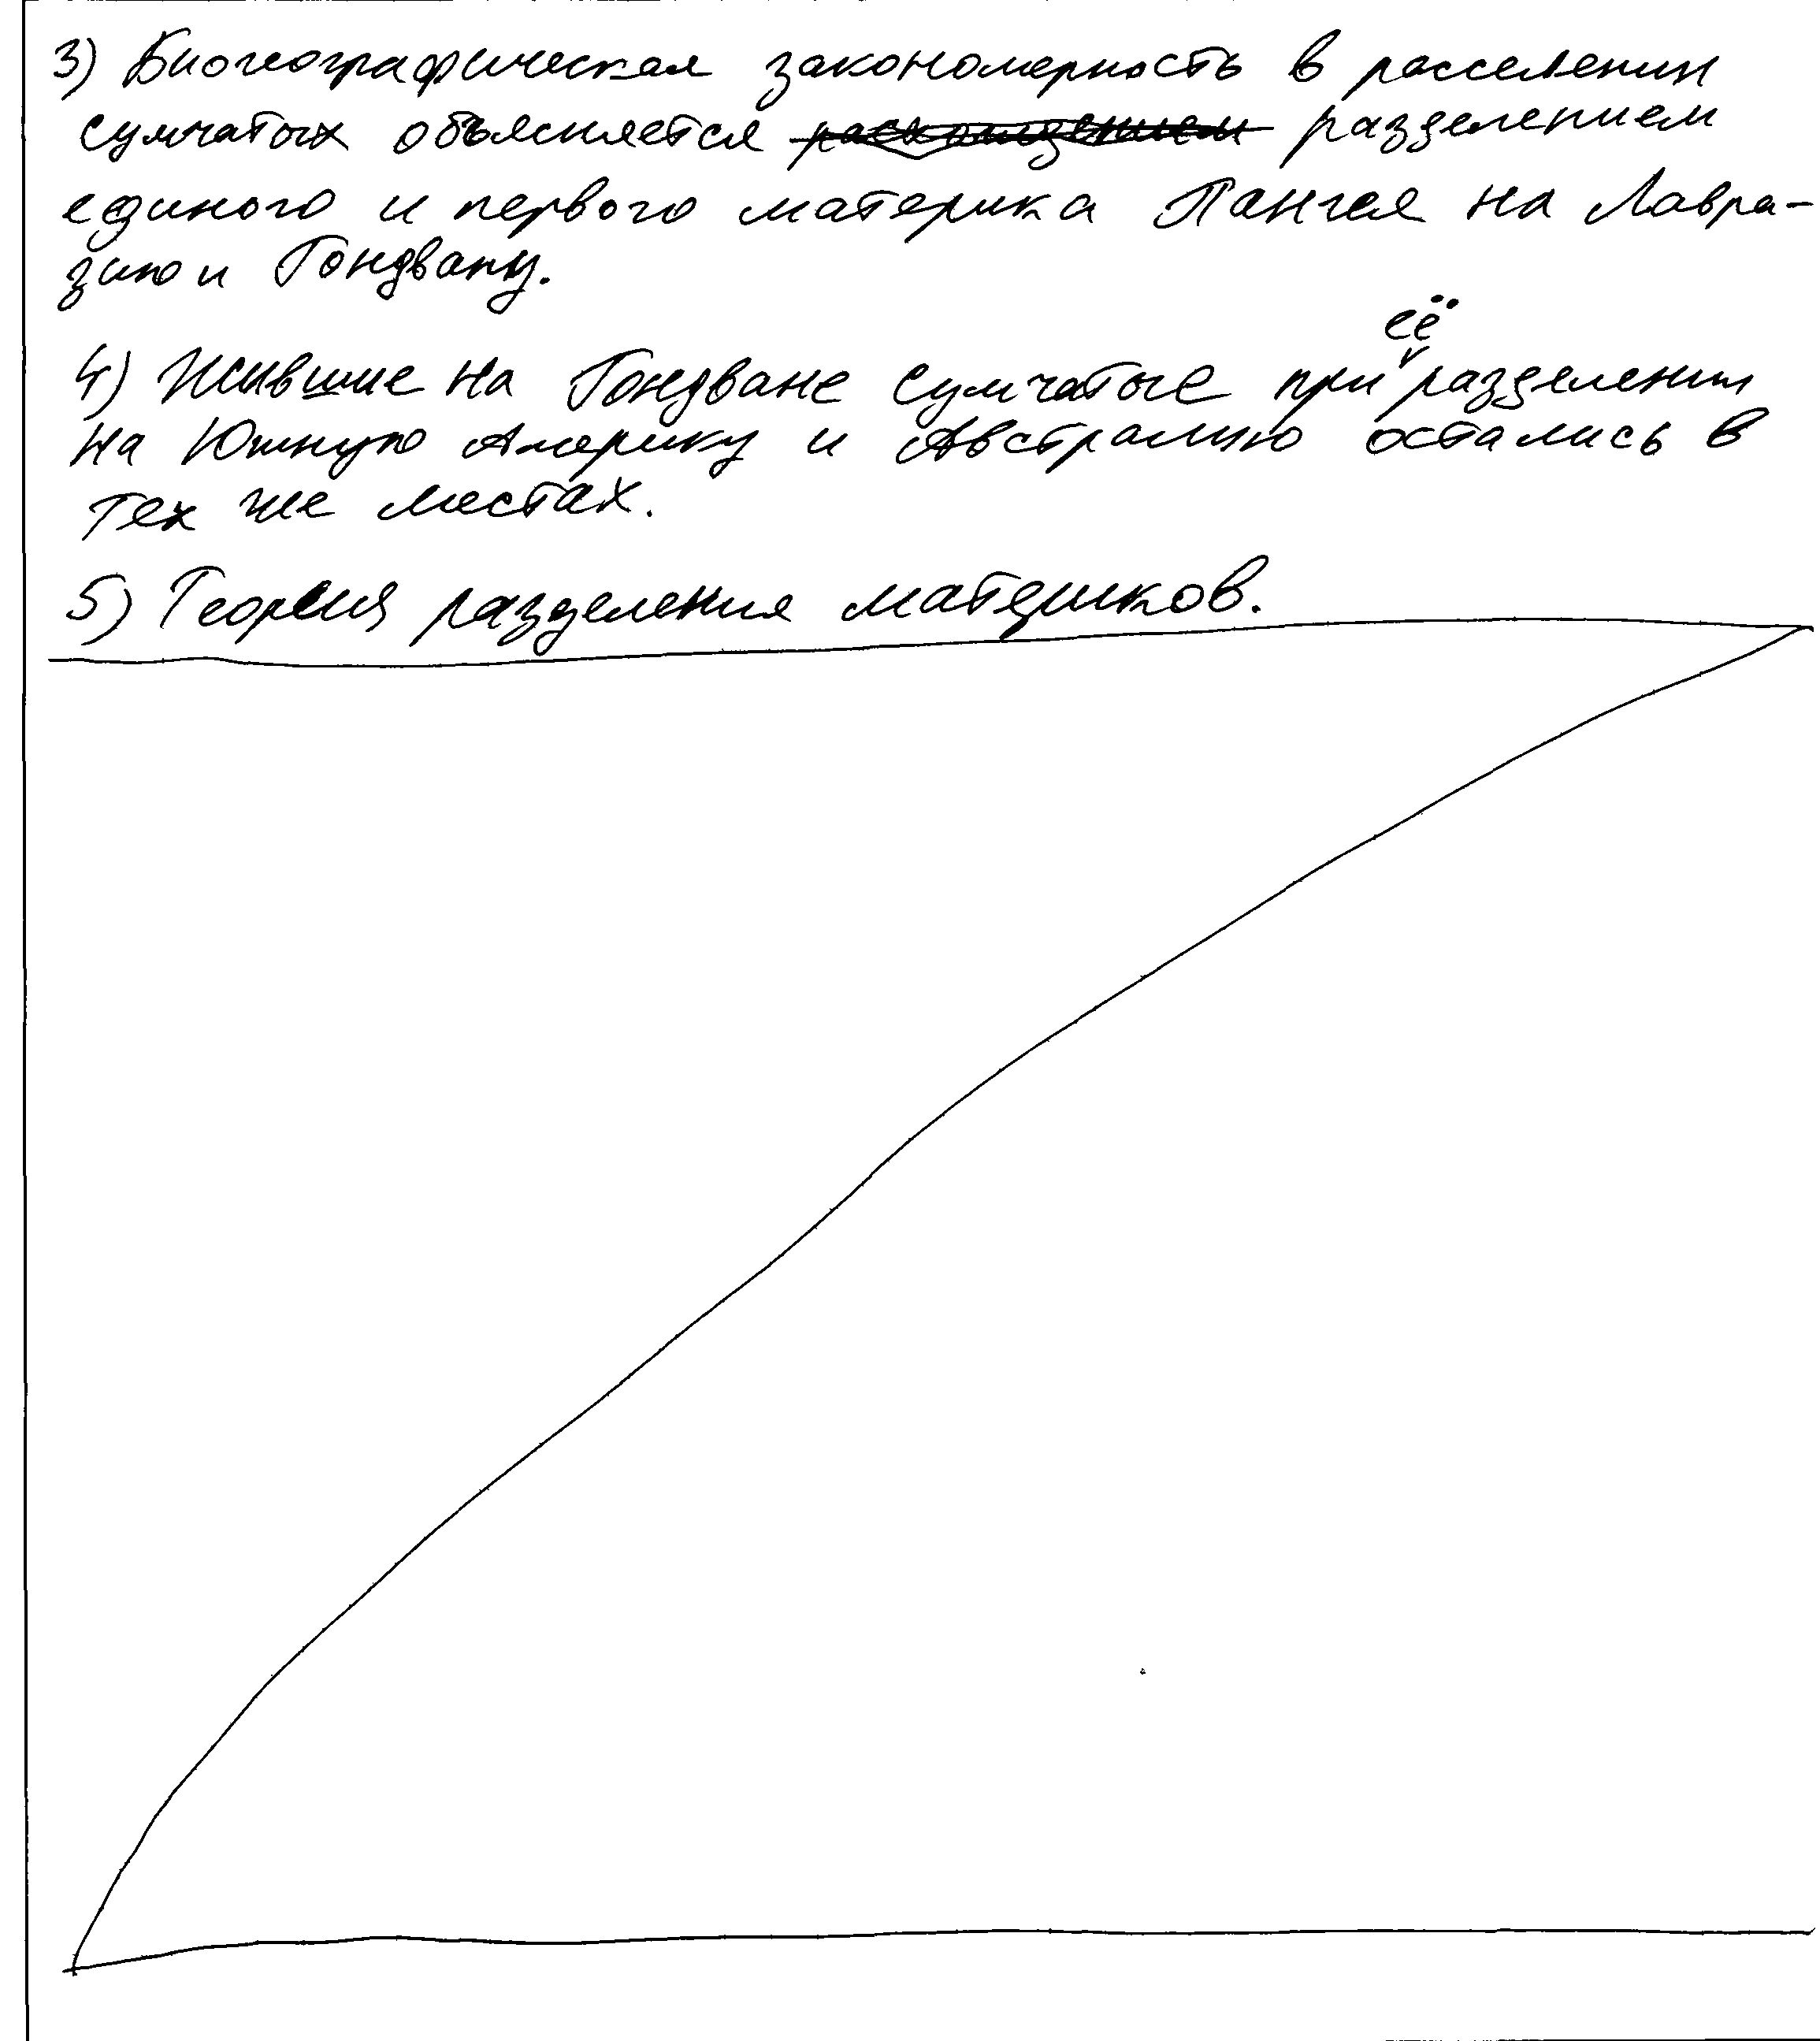 3) Биогеографическая закономерность в расселении
сумчатых объясняется разделением
единого и первого материка Пангея на Лавра-
зию и Гондвану.
4) Жившие на Гондване сумчатые при её разделении
на Южную Америку и Австралию остались в
тех же местах.
5) Теория разделения материков.